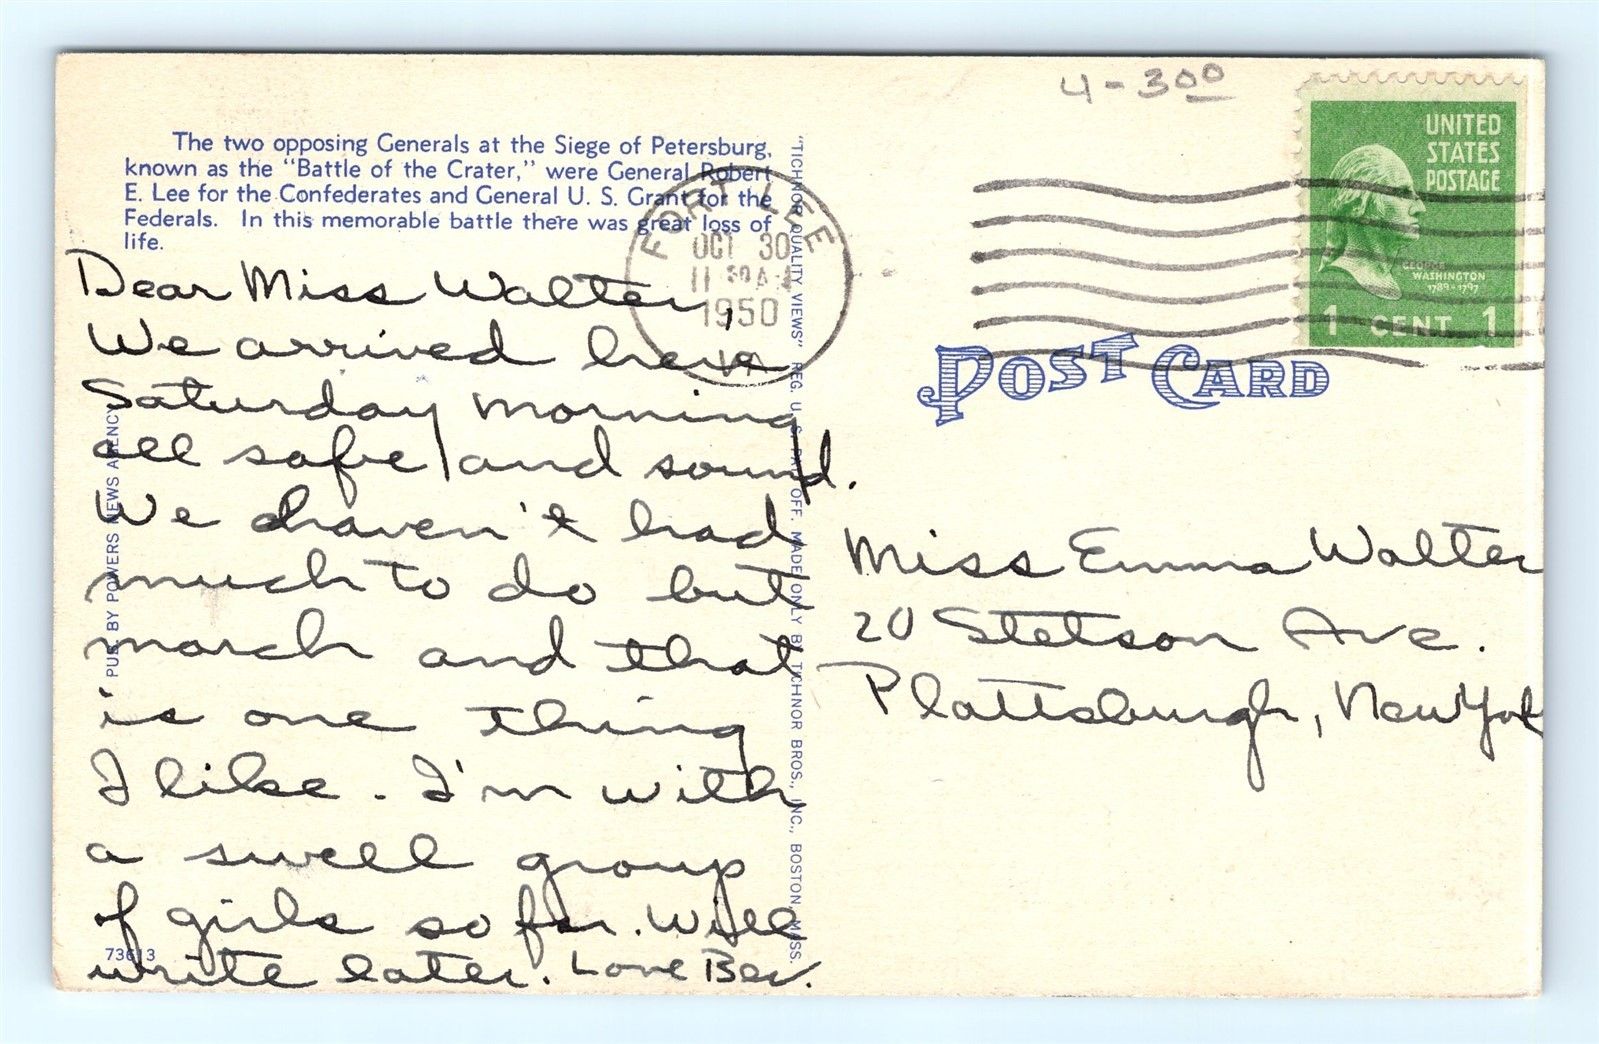 4-300
The two opposing Generals at the Siege of Petersburg,
known as the "Battle of the Crater," were General Robert
E. Lee for the Confederates and General U. S. Grant for the
Federals. In this memorable battle there was great loss of
life.
FORT LEE
OCT 30
11 30 AM
1950
VA
UNITED
STATES
POSTAGE
GEORGE
WASHINGTON
1789-1797
1 CENT 1
POST CARD
Dear Miss Walter,
We arrived here
Saturday morning
all safe and sound.
We haven't had
much to do but
march and that
is one thing
I like. I'm with
a swell group
of girls so far. Will
write later. Love Bev.
Miss Emma Walter
20 Stetson Ave.
Plattsburgh, New York
PUB. BY POWERS NEWS AGENCY
"TICHNOR QUALITY VIEWS" REG. U. S. PAT. OFF. MADE ONLY BY TICHNOR BROS., INC., BOSTON, MASS.
73613